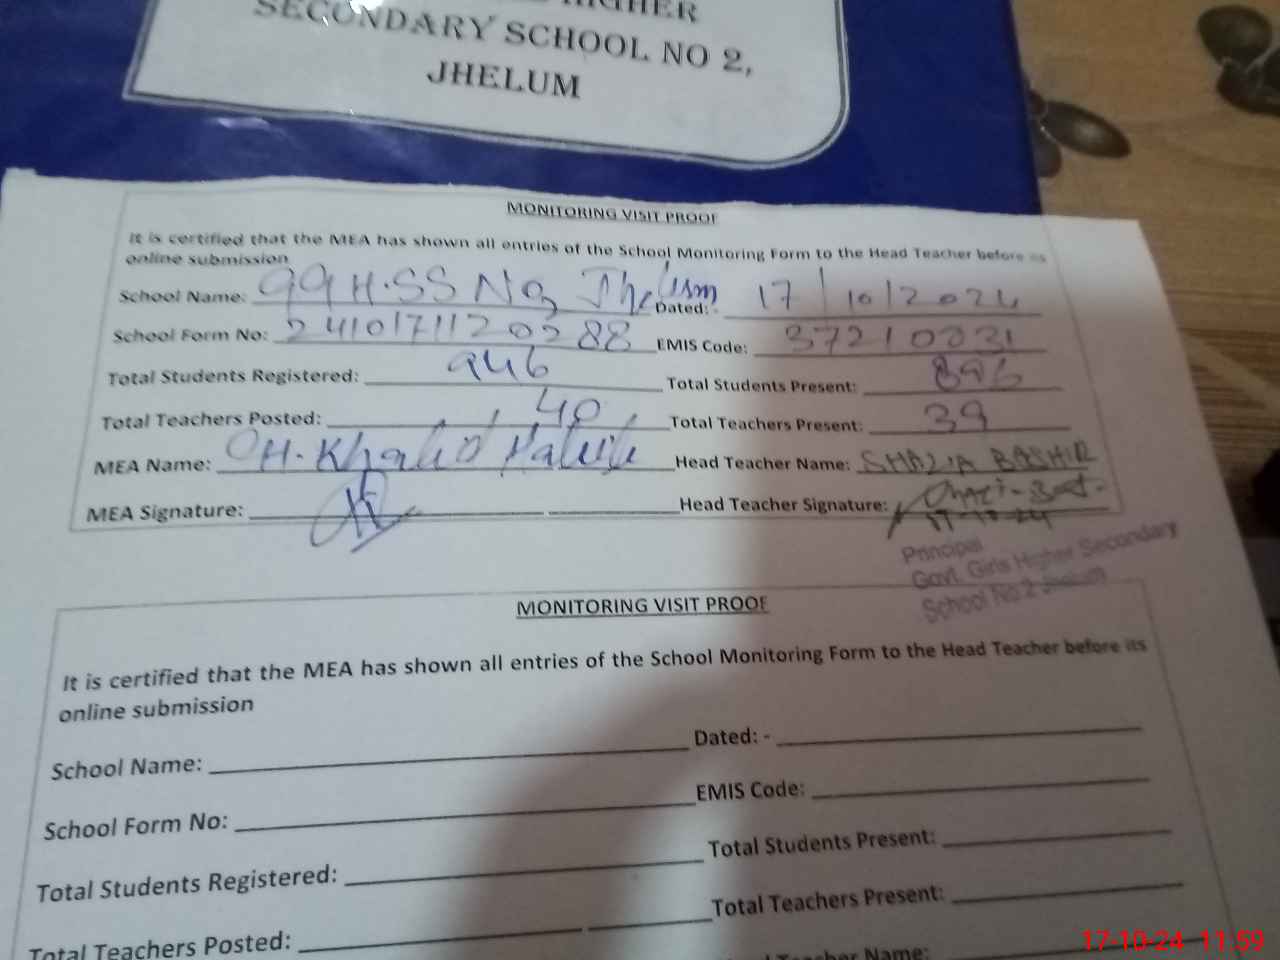 HIGHER
SECONDARY SCHOOL NO 2,
JHELUM
MONITORING VISIT PROOF
It is certified that the MEA has shown all entries of the School Monitoring Form to the Head Teacher before its
online submission
School Name: GGH.SS No2 Jhelum Dated: - 17/10/2024
School Form No: EMIS Code: 37210031
Total Students Registered: 946 Total Students Present: 896
Total Teachers Posted: 40 Total Teachers Present: 39
MEA Name: CH. Khalid Head Teacher Name: SHAZIA BASHIR
MEA Signature: Head Teacher Signature:
17-10-24
Principal
Govt. Girls Higher Secondary
School No.2 Jhelum
MONITORING VISIT PROOF
It is certified that the MEA has shown all entries of the School Monitoring Form to the Head Teacher before its
online submission
School Name: Dated: -
School Form No: EMIS Code:
Total Students Registered: Total Students Present:
Total Teachers Posted: Total Teachers Present:
Teacher Name:
17-10-24 11:59